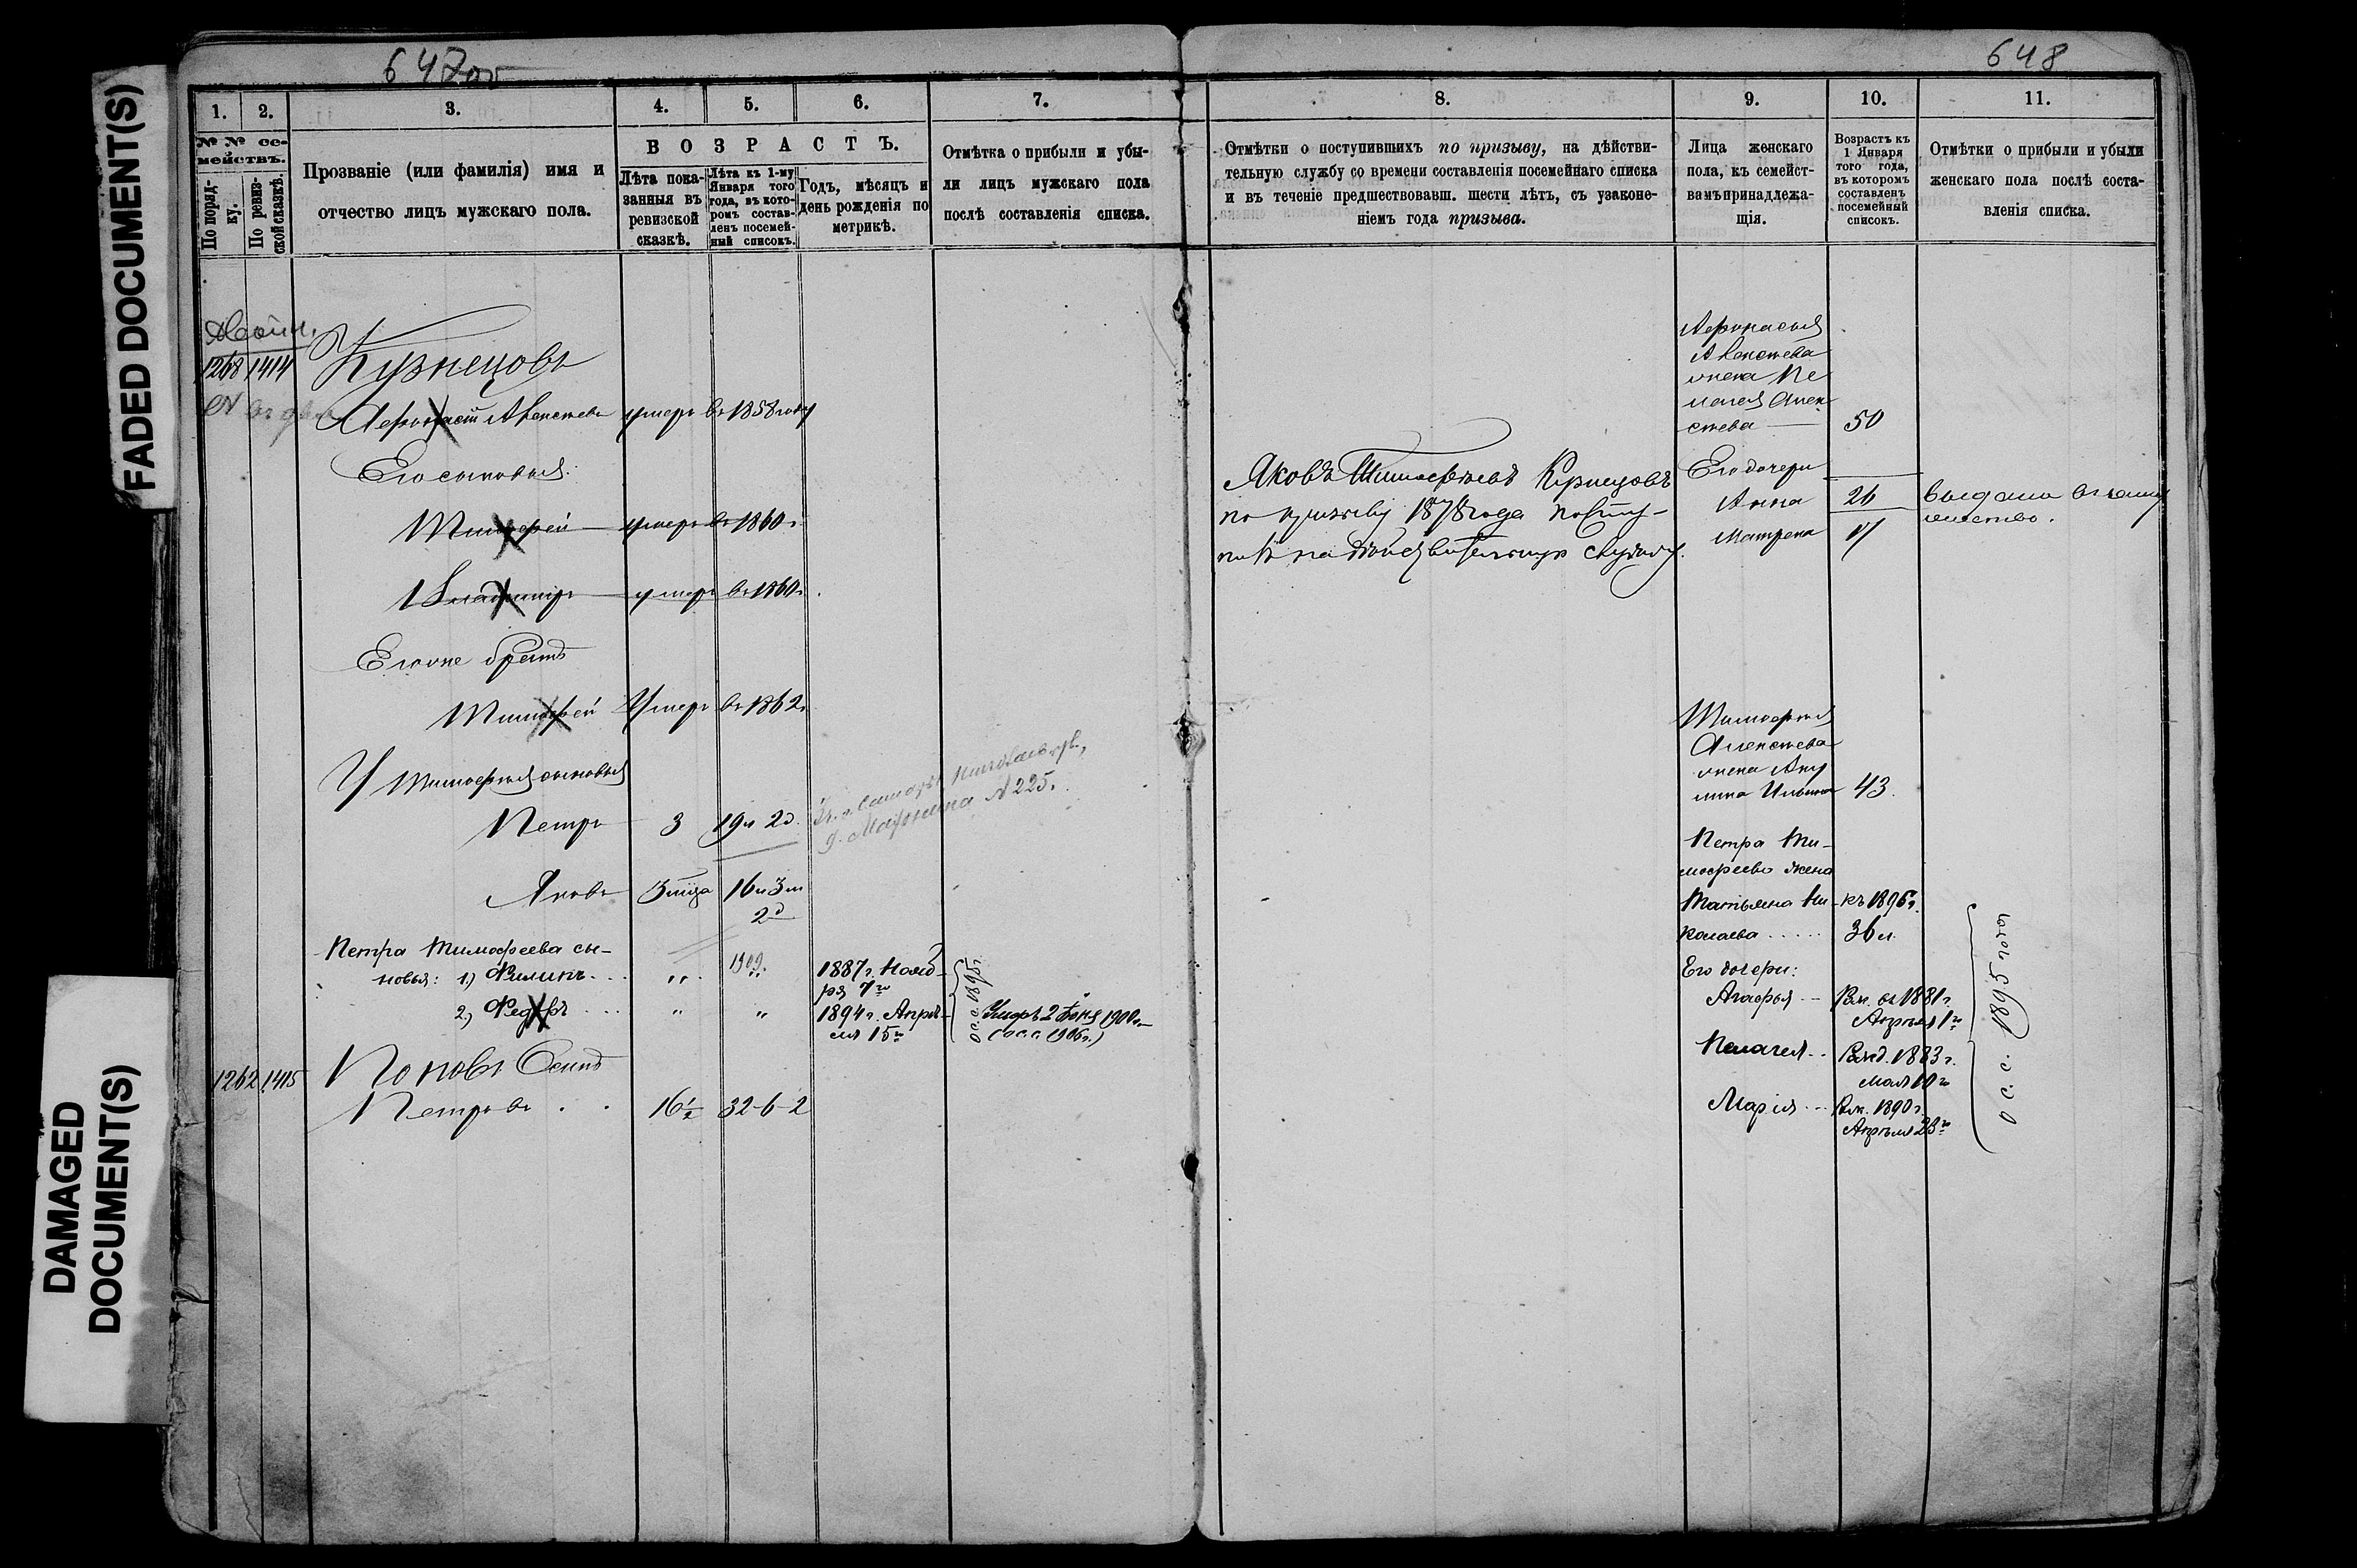 FADED DOCUMENT(S)
DAMAGED
DOCUMENT(S)
647об
1. 2. 3. 4. 5. 6. 7.
№ № се-
мействъ.
По поряд-
ку.
По ревиз-
ской сказкѣ.
Прозваніе (или фамилія) имя и
отчество лицъ мужскаго пола.
ВОЗРАСТЪ.
Лѣта пока-
занныя въ
ревизской
сказкѣ.
Лѣта къ 1-му
Января того
года, въ кото-
ромъ состав-
ленъ посемей-
ный списокъ.
Годъ, мѣсяцъ и
день рожденія по
метрикѣ.
Отмѣтка о прибыли и убы-
ли лицъ мужскаго пола
послѣ составленія списка.
1268 1414 Кузнецовъ
Афонасій Алексѣевъ умеръ въ 1858 году
Его сыновья:
Тимофей умеръ въ 1860 г.
Владимиръ умеръ въ 1860 г.
Его же братъ
Тимофей Умеръ въ 1862 г.
У Тимофея сыновья
Петръ 3 19 л 2 д.
№ 225.
Яковъ 3 мца 16 л 3 м
2 д
Петра Тимофеева сы-
новья: 1) Филипъ... " 1909. " 1887 г. Нояб-
ря 7го
2) Федоръ... " " 1894 г. Апрѣ-
ля 15го
о.с.с. 1895 г.
Умеръ 2 1900 г.
(о.с.с. 1906 г.)
1262 1415 Поповъ Осипъ
Петровъ . . 16½ 32-6-2
648
8. 9. 10. 11.
Отмѣтки о поступившихъ по призыву, на дѣйстви-
тельную службу со времени составленія посемейнаго списка
и въ теченіе предшествовавш. шести лѣтъ, съ узаконе-
ніемъ года призыва.
Лица женскаго
пола, къ семейст-
вамъ принадлежа-
щія.
Возрастъ къ
1 Января
того года,
въ которомъ
составленъ
посемейный
списокъ.
Отмѣтки о прибыли и убыли
женскаго пола послѣ соста-
вленія списка.
Яковъ Тимофѣевъ Кузнецовъ
по призыву 1878 года посту-
пилъ на дѣйствительную службу.
Афонасья
Алексѣева
жена Пе
лагея Алек
сѣева — 50
Его дочери
Анна 26 выдана въ заму
жество.
Матрена 17
Тимофея
Алексѣева
жена Аку
лина Ильина 43.
Петра Ти-
мофеева жена
Татьяна Ни- къ 1896 г.
колаева ..... 36 л.
Его дочери:
Агафья -- Рож. въ 1881 г.
Апрѣля 1го
Пелагея .. Рожд. 1883 г.
Мая 10го
Марія ... Рож. 1890 г.
Апрѣля 23го
о.с.с. 1895 года